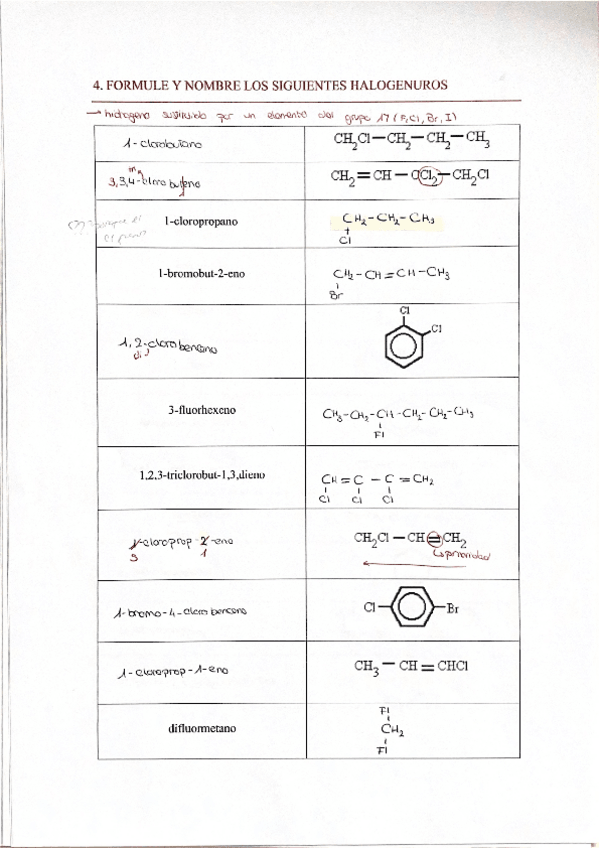 4. FORMULE Y NOMBRE LOS SIGUIENTES HALOGENUROS
→ hidrogeno sustituido por un elemento del grupo 17 (F, Cl, Br, I)
1-clorobutano
CH2Cl — CH2 — CH2 — CH3
3,3,4-cloro buteno
CH2 = CH — CCl2 — CH2Cl
1-cloropropano
CH2 - CH2 - CH3
Cl
1-bromobut-2-eno
CH2 - CH = CH - CH3
Br
Cl
Cl
1,2-clorobenceno
di
3-fluorhexeno
CH3 - CH2 - CH - CH2 - CH2 - CH3
Fl
1,2,3-triclorobut-1,3,dieno
CH = C - C = CH2
Cl Cl Cl
1-cloroprop-2-eno
3 1
CH2Cl — CH = CH2
prioridad
1-bromo-4-cloro benceno
Cl Br
1-cloroprop-1-eno
CH3 — CH = CHCl
difluormetano
Fl
CH2
Fl